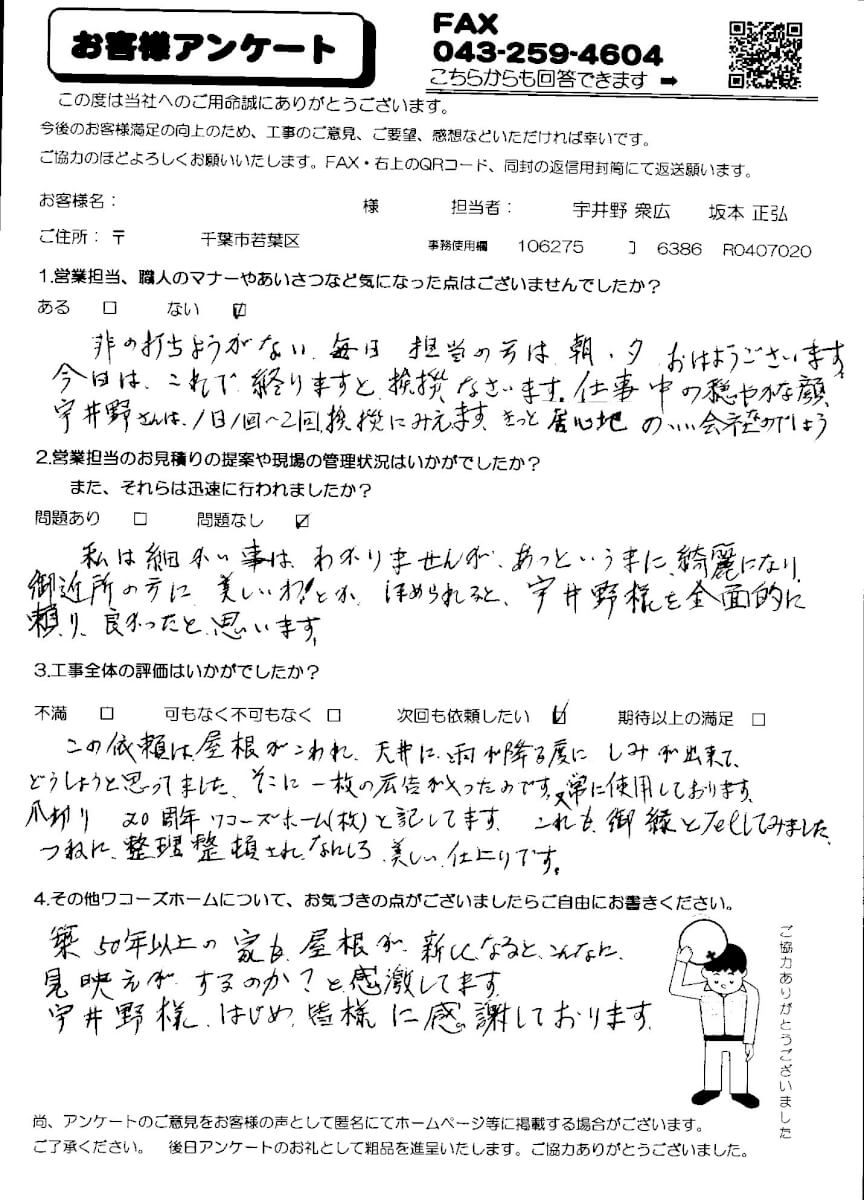 お客様アンケート
FAX
043-259-4604
こちらからも回答できます ➡
この度は当社へのご用命誠にありがとうございます。
今後のお客様満足の向上のため、工事のご意見、ご要望、感想などいただければ幸いです。
ご協力のほどよろしくお願いいたします。FAX・右上のQRコード、同封の返信用封筒にて返送願います。
お客様名： 様 担当者： 宇井野 衆広 坂本 正弘
ご住所：〒 千葉市若葉区 事務使用欄 106275 J 6386 R0407020
1.営業担当、職人のマナーやあいさつなど気になった点はございませんでしたか？
ある □ ない ☑
非の打ちようがない、毎日 担当の方は、朝・夕 おはようございます。
今日は、これで終りますと、挨拶なさいます。仕事中の穏やかな顔、
宇井野さんは、1日1回～2回挨拶にみえます、きっと居心地のいい会社なのでしょう
2.営業担当のお見積りの提案や現場の管理状況はいかがでしたか？
また、それらは迅速に行われましたか？
問題あり □ 問題なし ☑
私は細かい事は、わかりませんが、あっというまに、綺麗になり、
御近所の方に 美しいわ！とか、ほめられると、宇井野様を全面的に
頼り、良かったと、思います。
3.工事全体の評価はいかがでしたか？
不満 □ 可もなく不可もなく □ 次回も依頼したい ☑ 期待以上の満足 □
この依頼は、屋根がこわれ、天井に、雨が降る度に しみが出来て、
どうしようと思ってました、そこに一枚の広告が入ったのです。又常に使用しております。
爪切り 20周年ワコーズホーム(枚)と記してます。 これも、御縁とTelしてみました、
つねに、整理整頓され、なんしろ、美しい仕上りです。
4.その他ワコーズホームについて、お気づきの点がございましたらご自由にお書きください。
築50年以上の家も、屋根が、新しくなると、こんなに、
見映えが、するのか？と感激してます。
宇井野様、はじめ、皆様に感謝しております。
ご協力ありがとうございました
尚、アンケートのご意見をお客様の声として匿名にてホームページ等に掲載する場合がございます。
ご了承ください。 後日アンケートのお礼として粗品を進呈いたします。ご協力ありがとうございました。